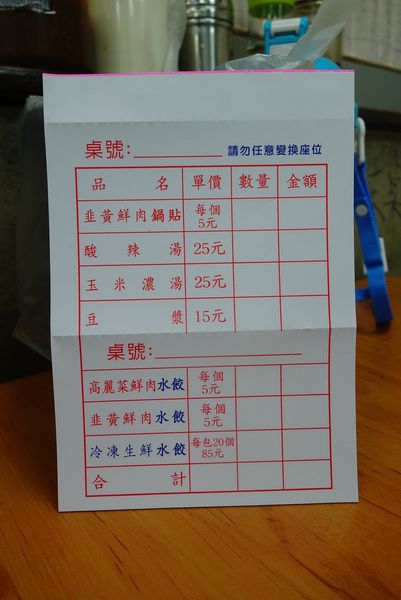 桌號: 請勿任意變換座位
品名 單價 數量 金額
韭黃鮮肉鍋貼 每個 5元
酸辣湯 25元
玉米濃湯 25元
豆漿 15元
桌號:
高麗菜鮮肉水餃 每個 5元
韭黃鮮肉水餃 每個 5元
冷凍生鮮水餃 每包20個 85元
合計